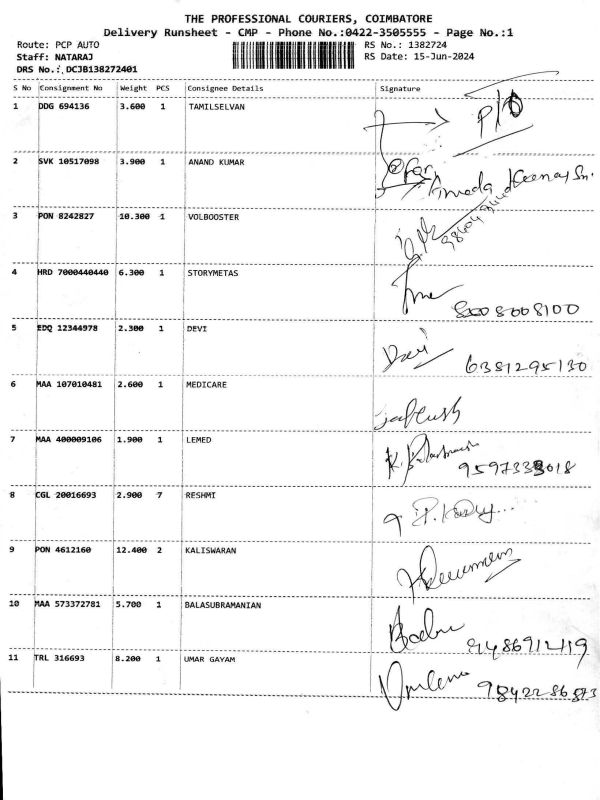 THE PROFESSIONAL COURIERS, COIMBATORE
Delivery Runsheet - CMP - Phone No.:0422-3505555 - Page No.:1
Route: PCP AUTO RS No.: 1382724
Staff: NATARAJ RS Date: 15-Jun-2024
DRS No.: DCJB138272401
S No Consignment No Weight PCS Consignee Details Signature
1 DDG 694136 3.600 1 TAMILSELVAN
2 SVK 10517098 3.900 1 ANAND KUMAR
3 PON 8242827 10.300 1 VOLBOOSTER
4 HRD 7000440440 6.300 1 STORYMETAS
8008008100
5 EDQ 12344978 2.300 1 DEVI
Devi 6381295130
6 MAA 107010481 2.600 1 MEDICARE
7 MAA 400009106 1.900 1 LEMED
8 CGL 20016693 2.900 7 RESHMI
9 PON 4612160 12.400 2 KALISWARAN
10 MAA 573372781 5.700 1 BALASUBRAMANIAN
11 TRL 316693 8.200 1 UMAR GAYAM